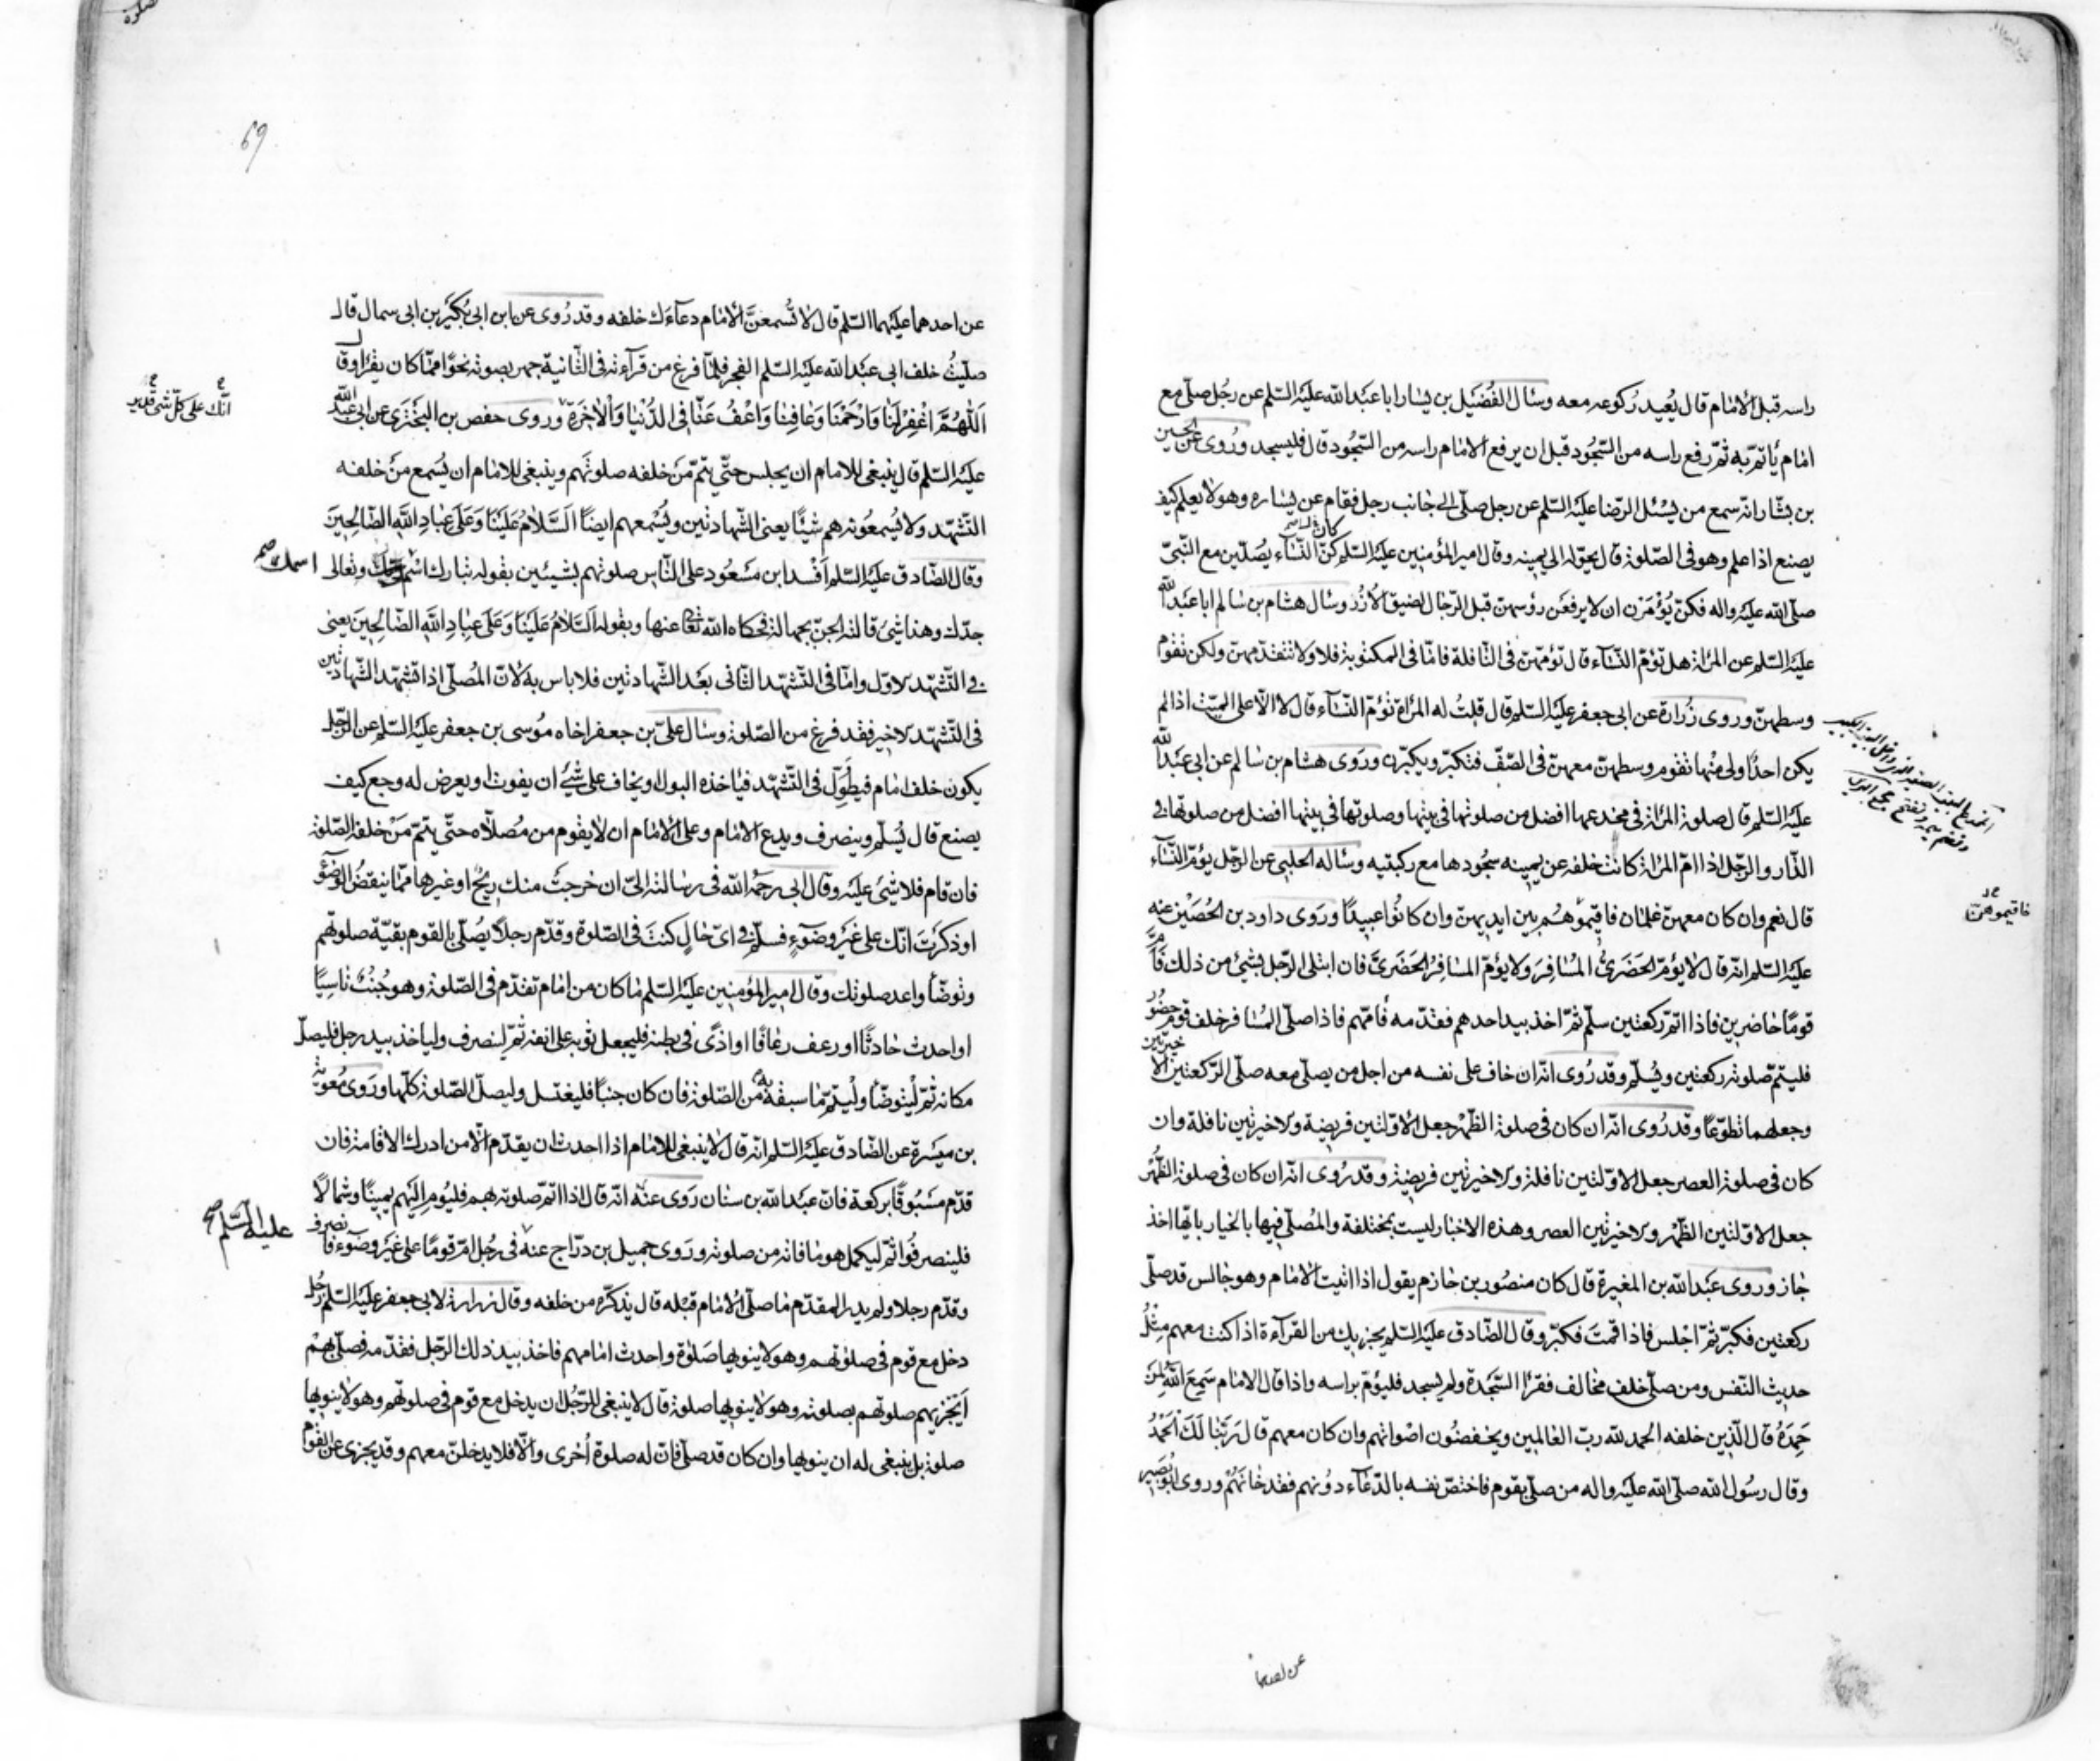 راسه قبل الامام قال يُعيد رُكوعه معه وسئال الفُضَيل بن يسار ابا عبَد الله علَيه السّلم عن رجُل صلّى مع
امام يأتمّ به ثمّ رفع راسه من السّجُود قبل ان يرفع الامام راسه من السّجُود قال فليسجد ورُوى عن الحسين
بن بشّار انّه سمع من يسْئل الرّضا علَيه السّلم عن رجل صلّى الى جانب رجل فقام عن يساره وهو لا يعلم كيف
يصنع اذا علم وهو فى الصّلوة قال يحوّله الى يمينه وقال امير المؤمنين علَيه السّلم كنّ النّسآء يُصلّين مع النّبىّ
صلّى الله علَيه واله فكنّ يُؤْمَرْن ان لا يرفعْن رؤسهنّ قبل الرّجال لضيق الاُزُر وسئال هشام بن سالم ابا عبَد الله
علَيه السّلم عن المرأة هل تؤمّ النّسآء قال تؤمّهنّ فى النّافلة فامّا فى المكتوبة فلا ولا تتقدّمهنّ ولكن تقوم
وسطهنّ وروى زُرارة عن ابى جعفر علَيه السّلم قال قلتُ له المرأة تؤمّ النّسآء قال لا الّا على الميّت اذا لم
يكن احدٌ اولى منْها تقوم وسطهنّ معهنّ فى الصّفّ فتكبّر ويكبّرن ورَوى هشام بن سالم عن ابى عبَد الله
علَيه السّلم قال صلوة المرأة فى مخدعها افضل من صلوتها فى بيتها وصلوتها فى بيتها افضل من صلوتها فى
الدّار والرّجل اذا امّ المرأة كانت خلفه عن يمينه سجُودها مع ركبتيه وسئاله الحلبى عن الرّجل يؤمّ النّسآء
قال نعم وان كان معهنّ غلمان فاقيموهُم بين ايديهنّ وان كانُوا عبيدًا ورَوى داود بن الحُصَيْن عنه
علَيه السّلم انّه قال لا يؤمّ الحَضَرىُّ المُسافِرَ ولا يؤمّ المسافِرُ الحَضَرىَّ فان ابتلى الرّجل بشئ من ذلك فأمّ
قومًا حاضرين فاذا اتمّ ركعتين سلّم ثمّ اخذ بيد احدهم فقدّمه فأمّهم فاذا صلّى المُسافر خلف قوم حضُور
فليتمّ صلوته ركعتين ويُسلّم وقد رُوى انّه ان خاف على نفسه من اجل من يصلّى معه صلّى الرّكعتين الاخيرتين
وجعلهما تطوّعًا وقد رُوى انّه ان كان فى صلوة الظّهْر جعل الاوّلتين فريضة والاخيرتين نافلة وان
كان فى صلوة العصر جعل الاوّلتين نافلة والاخيرتين فريضة وقد رُوى انّه ان كان فى صلوة الظّهْر
جعل الاوّلتين الظّهْر والاخيرتين العصر وهذه الاخبار ليست بمختلفة والمُصلّى فيها بالخيار بايّها اخذ
جاز وروى عبَد الله بن المغيرة قال كان منصُور بن حازم يقول اذا اتيت الامام وهو جالس قد صلّى
ركعتين فكبّر ثمّ اجْلس فاذا قمتَ فكبّر وقال الصّادق علَيه السّلم يجزيك من القرآءة اذا كنت معهم مِثْلُ
حديث النّفس ومن صلّى خلف مخالف فقرأ السّجْدة ولم يسجد فليؤم براسه واذا قال الامام سَمِعَ اللهُ لِمَنْ
حَمِدَهُ قال الّذين خلفه الحمد لله ربّ العالمين ويخفضُون اصْواتهم وان كان معهم قال رَبَّنا لَكَ الْحَمْدُ
وقال رسُول الله صلّى الله علَيه واله من صلّى بقوم فاختصّ نفسه بالدّعآء دُونهم فقد خانَهُمْ وروى ابُو بَصير
فاقيموهنّ
69
عن احدهما علَيهما السّلم قال لا تُسْمعنَّ الامام دعآءَك خلفه وقد رُوى عن ابن ابى بُكَيْر بن ابى سمال قال
صلّيتُ خلف ابى عبَد الله علَيه السّلم الفجر فلمّا فرغ من قرآءته فى الثّانية جهر بصوته نحوًا ممّا كان يقْرأ وقال
اَللّهُمَّ اغْفِرْ لَنا وَارْحَمْنا وَعافِنا وَاعْفُ عَنّا فِى الدُّنْيا وَالْاخِرَةِ وروى حفص بن البَخْتَرى عن ابى عبد الله
انّك على كلّ شئ قدير
علَيه السّلم قال ينبغى للامام ان يجلس حتّى يتمّ مَن خلفه صلوتَهم وينبغى للامام ان يُسْمع مَنْ خلفه
التّشهّد ولا يُسمعُونه هم شيئًا يعنى الشّهادتين ويُسْمعهم ايضًا اَلسَّلامُ عَلَيْنا وَعَلى عِبادِ اللهِ الصّالِحينَ
وقال الصّادق علَيه السّلم اَفسد ابن مَسْعُود على النّاس صلوتهم بشيئين بقوله تبارك اسْم ربّك وتعالى
اسمك صح
جدّك وهذا شئ قالته الجنّ بجهالة فحكاه الله تعا عنها وبقوله اَلسَّلامُ عَلَيْنا وَعَلى عِبادِ اللهِ الصّالِحينَ يعنى
فى التّشهّد الاوّل وامّا فى التّشهّد الثّانى بعْد الشّهادتين فلا باس به لانّ المُصلّى اذا تشهّد الشّهادتين
فى التّشهّد الاخير فقد فرغ من الصّلوة وسئال علىّ بن جعفر اخاه مُوسى بن جعفر علَيه السّلم عن الرّجل
يكون خلف امام فيطَوّل فى التّشهّد فياخذه البول او يخاف على شئ ان يفوت او يعرض له وجع كيف
يصنع قال يُسلّم وينصرف ويدع الامام وعلى الامام ان لا يقُوم من مُصلّاه حتّى يتمّ مَنْ خلفه الصّلوة
فان قام فلا شئ علَيه وقال ابى رحمَه الله فى رسالته الىّ ان خرجَتْ منك ريحٌ او غيرها ممّا ينقضُ الوضوء
او ذكرْتَ انّك على غَيْر وضوءٍ فسلّم فى اىّ حالٍ كنتَ فى الصّلوة وقدّم رجلًا يُصلّى بالقوم بقيّة صلوتهم
وتوضّأ واعد صلوتك وقال امير المؤمنين علَيه السّلم ما كان من امام تقدّم فى الصّلوة وهو جُنُبٌ ناسِيًا
او احدث حادثًا او رعف رعافًا او اذًى فى بطنه فليجعل ثوبه على انفه ثمّ لينصرف ولياخذ بيد رجل فليصلّ
مكانه ثمّ لْيتوضّأ ولْيتمّ ما سبقه به من الصّلوة فان كان جنبًا فليغتسل وليصلّ الصّلوة كلّها ورَوى مُعوية
بن ميسَرة عن الصّادق علَيه السّلم انّه قال لا ينبغى للامام اذا احدث ان يقدّم الّا من ادرك الاقامة فان
قدّم مسْبُوقًا بركعة فانّ عبَد الله بن سنان رَوى عنْه انّه قال اذا اتمّ صلوته بهم فليُوم الَيهم يمينًا وشمالًا
عليه السّلم
فلينصرفُوا ثمّ ليكمل هو ما فاته من صلوته ورَوى جميل بن درّاج عنه فى رجُل امّ قومًا على غَيْر وضوء فانصرف
وقدّم رجلا ولم يدر المقدّم ما صلّى الامام قبْله قال يذكّره من خلفه وقال زرارة لابى جعفر علَيه السّلم رجُل
دخل مع قوم فى صلوتهم وهو لا ينويها صَلوة واحدث امامهم فاخذ بيد ذلك الرّجل فقدّمه فصلّى بهمْ
اَيُجْزيهم صلوتهم بصلوته وهو لا ينويها صلوة قال لا ينبغى للرّجُل ان يدخل مع قوم فى صلوتهم وهو لا ينويها
صلوة بل ينبغى له ان ينويها وان كان قد صلّى فانّ له صلوة اُخرى والّا فلا يدخلنّ معهم وقد يجزى عن القوم